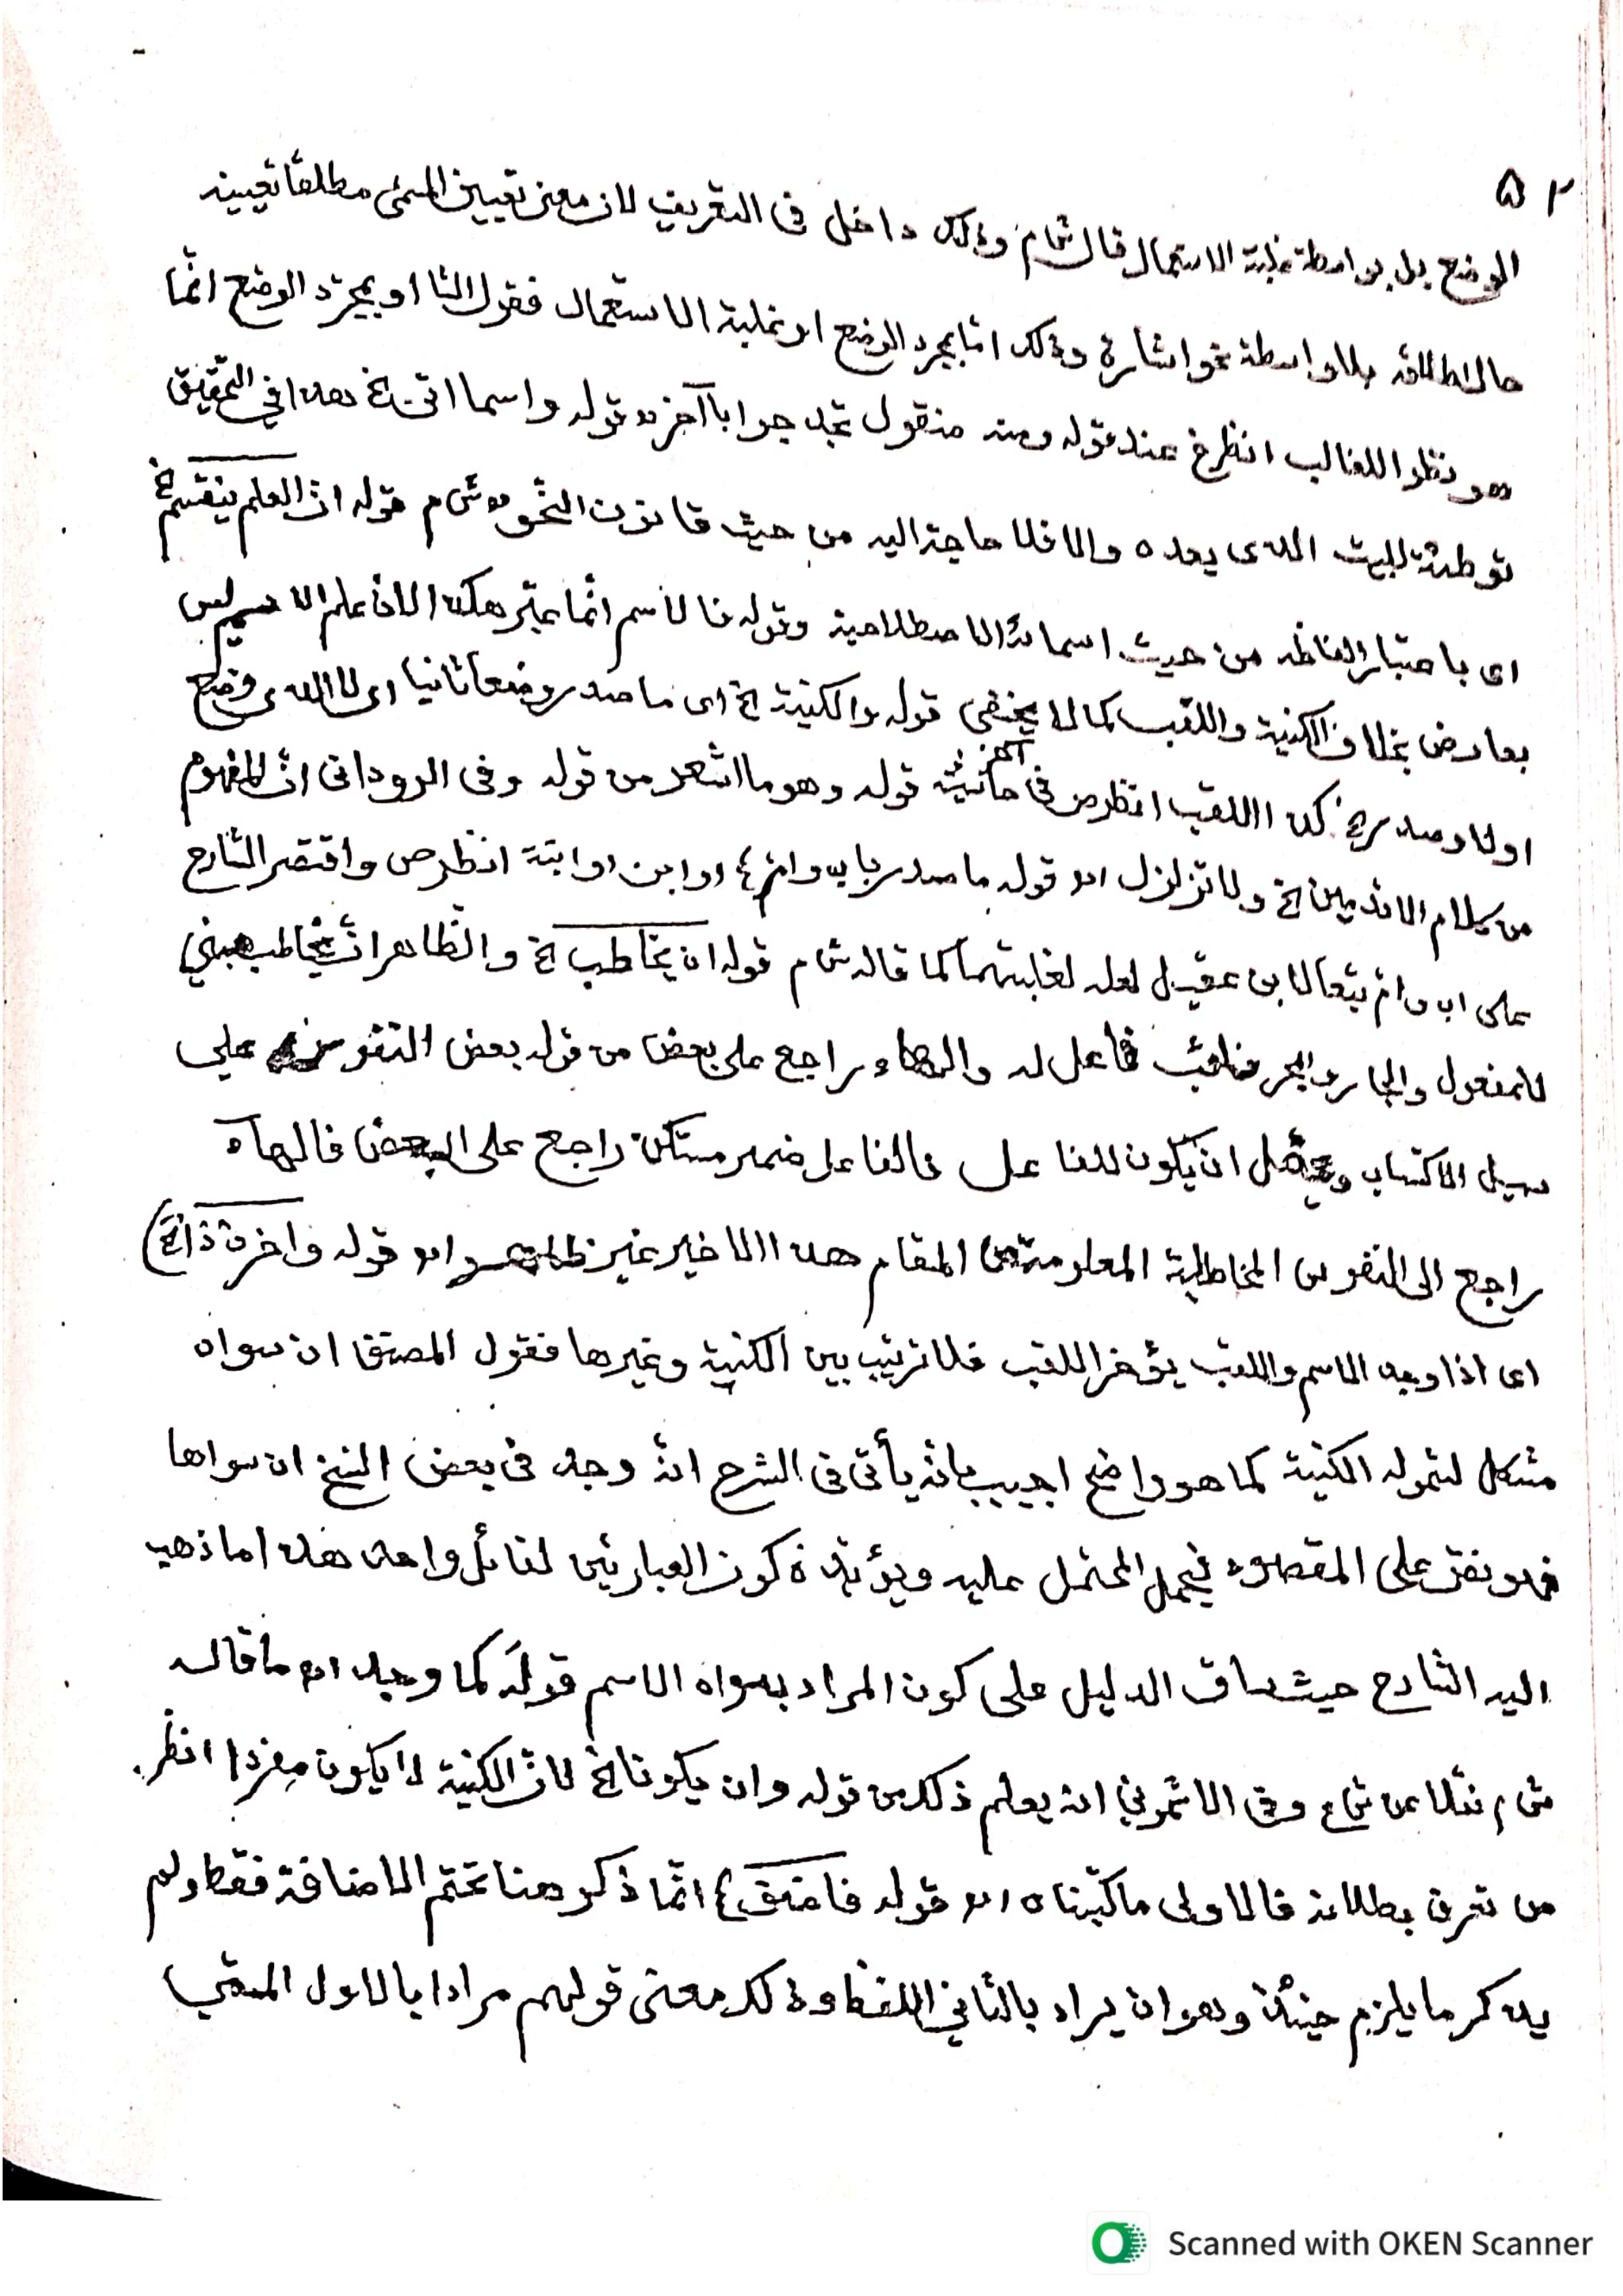 ٥٢
الوضع بل بواسطة غلبة الاستعمال قال ش م وذلك داخل فى التعريف لان معنى تعيين المسمى مطلقا تعيينه
حال اطلاقه بلا واسطة نحو اشارة وذلك امّا بمجرد الوضع او غلبة الاستعمال فقول الشا او بمجرّد الوضع انّما
هو نظرا للغالب انظر خ عند قوله ومنه منقول تجد جوابا آخر قوله واسما اتى الخ هذا فى التحقيق
توطئة للبيت الذى بعده والا فلا حاجة اليه من حيث قانون النّحو ش م قوله انّ العلم ينقسم الخ
اى باعتبار الفاظه من حيث اسمائه الاصطلاحية وقوله فالاسم انّما عبّر هكذا لانّ علم الاسم ليس
بعارض بخلاف الكنية واللقب كما لا يخفى قوله والكنية الخ اى ما صدر وضعا ثانيا اى لا الذى وضع
اولا وصدر الخ كذا اللقب انظر ص فى حاشية آخر قوله وهو ما اشعر من قوله وفى الرودانى انّ المفهوم
من كلام الاقدمين الخ ولا تزلزل اه قوله ما صدر باب وام او ابن او ابنة انظر ص واقتصر الشارح
على اب وام تبعا لابن عقيل لعله لغلبتهما كما قاله ش م قوله ان يخاطب الخ والظاهر انّ يخاطب مبني
للمفعول والجار والمجرور نائب فاعل له والهاء راجع على بعض من قوله بعض النفوس على
سبيل الاكتساب ويحتمل ان يكون للفاعل فالفاعل ضمير مستكن راجع على البعض فالهاء
راجع الى النفوس المخاطبة المعلومة من المقام هذا الاخير غير ظاهر اه قوله واخرن ذا الخ
اى اذا وجد الاسم واللقب يؤخر اللقب فلا ترتيب بين الكنية وغيرها فقول المصنّف ان سواه
مشكل لشموله الكنية كما هو واضح اجيب بانّه يأتى فى الشرح انّه وجد فى بعض النسخ ان سواها
فهو نصّ على المقصود فيحمل المحتمل عليه ويؤيّده كون العبارتين لقائل واحد هذا ما ذهب
اليه الشارح حيث ساق الدليل على كون المراد بسواه الاسم قوله كما وجد اه ما قاله
ش م نقلا عن ش ع وفى الاشمونى انه يعلم ذلك من قوله وان يكونا الخ لانّ الكنية لا يكون مفردا انظر
من تعرف بطلانه فالاولى ما كتبناه اه قوله فاضف انّما ذكر هنا تحتّم الاضافة فقط ولم
يذكر ما يلزم حينئذ وهو ان يراد بالثانى اللفظ وذلك معنى قولهم مرادا بالاول المسمّى
Scanned with OKEN Scanner